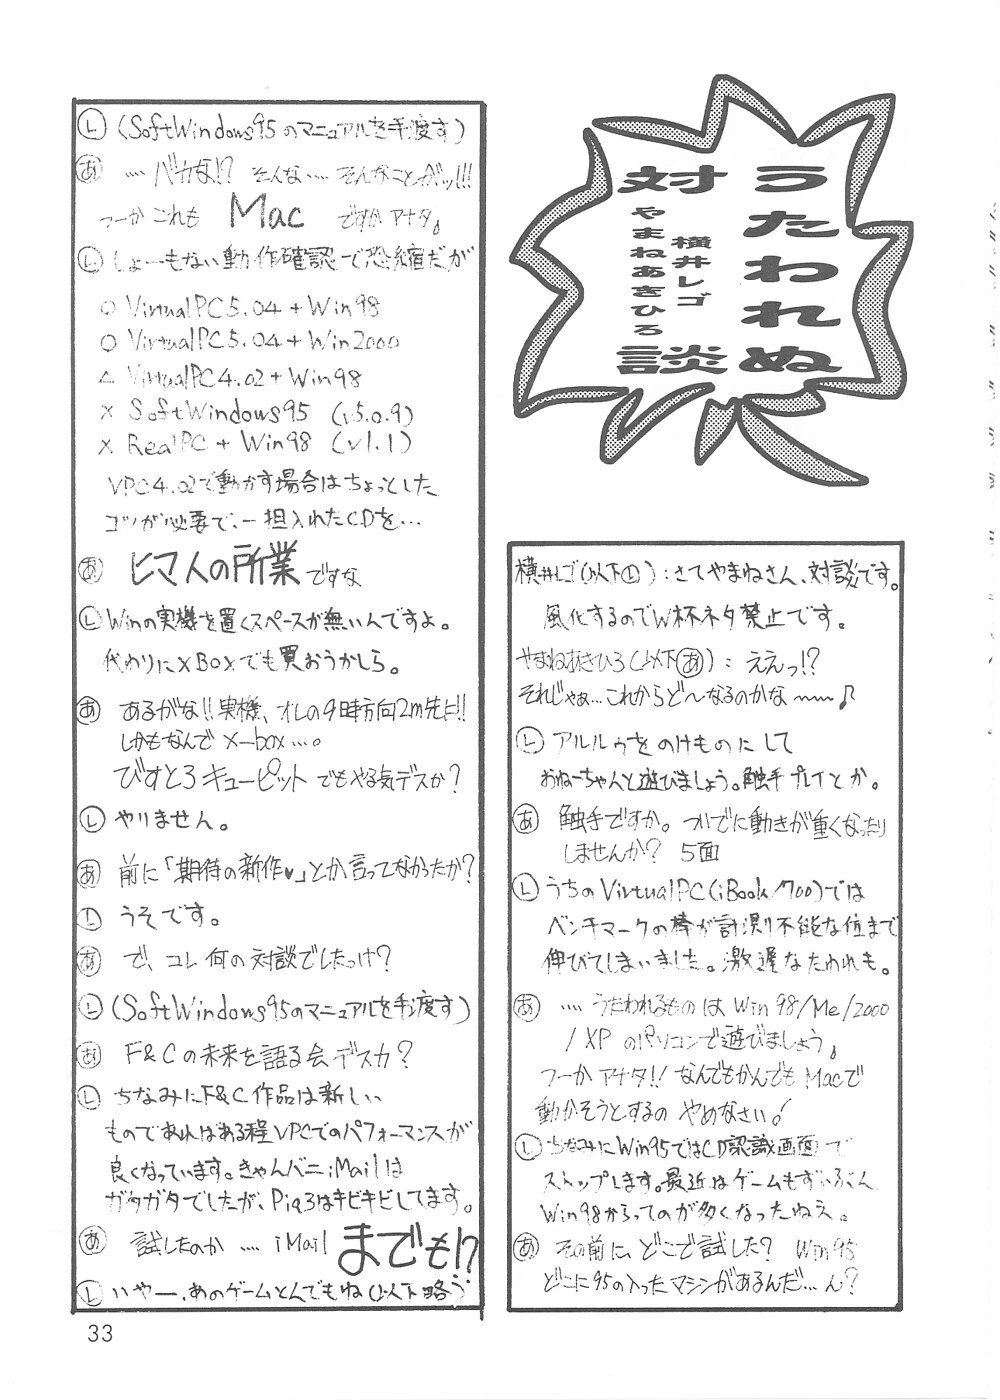 うたわれぬ
対談
横井レゴ
やまねあきひろ
横井レゴ(以下Ⓛ):さてやまねさん、対談です。
風化するのでW杯ネタ禁止です。
やまねあきひろ(以下あ):ええっ!?
それじゃぁ…これからど〜なるのかな〜〜♪
Ⓛ アルルゥをのけものにして
おねーちゃんと遊びましょう。触手プレイとか。
あ 触手ですか。ついでに動きが重くなったり
しませんか? 5面
Ⓛ うちのVirtualPC(iBook/700)では
ベンチマークの棒が計測不能な位まで
伸びてしまいました。激遅なたわれも。
あ ‥‥うたわれるものは Win 98/Me/2000
/XP のパソコンで遊びましょう。
つーかアナタ!! なんでもかんでも Macで
動かそうとするの やめなさい!
Ⓛ ちなみにWin95ではCD認識画面で
ストップします。最近はゲームもずいぶん
Win98からってのが多くなったねえ。
あ その前に、どこで試した? Win95
どこに95の入ったマシンがあるんだ…ん?
Ⓛ (SoftWindows95のマニュアルを手渡す)
あ ‥‥バカな!? そんな‥‥そんなことがッ!!!
つーかこれも Mac ですかアナタ。
Ⓛ しょーもない動作確認で恐縮だが
○ VirtualPC5.04+Win98
○ VirtualPC5.04+Win2000
△ VirtualPC4.02+Win98
× SoftWindows95 (v5.0.9)
× RealPC+Win98 (v1.1)
VPC4.02で動かす場合はちょっとした
コツが必要で、一担入れたCDを…
あ ヒマ人の所業ですな
Ⓛ Winの実機を置くスペースが無いんですよ。
代わりにXBoxでも買おうかしら。
あ あるがな!!実機、オレの9時方向2m先に!!
しかもなんで X-box…。
びすとろキューピットでもやる気デスか?
Ⓛ やりません。
あ 前に「期待の新作♥」とか言ってなかったか?
Ⓛ うそです。
あ で、コレ何の対談でしたっけ?
Ⓛ (SoftWindows95のマニュアルを手渡す)
あ F&Cの未来を語る会デスカ?
Ⓛ ちなみにF&C作品は新しい
ものであればある程VPCでのパフォーマンスが
良くなっています。きゃんバニiMailは
ガタガタでしたが、Pia3はキビキビしてます。
あ 試したのか ‥‥ iMail までも!?
Ⓛ いやー、あのゲームとんでもね(以下略)
33